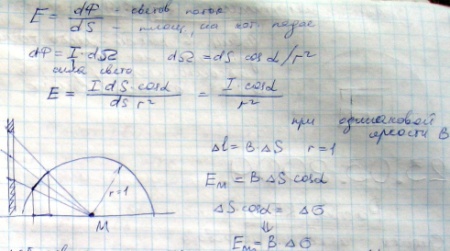 E = dФ/dS - светов. поток
- площ., на кот. падает
dФ = I·dΩ dΩ = dS cosα/r²
сила света
E = I dS·cosα / dS r² = I·cosα / r²
при одинаковой
яркости B
ΔI = B·ΔS r=1
r=1
E_M = B·ΔS cosα
ΔS cosα = Δσ
⇓
E_M = B·Δσ
M